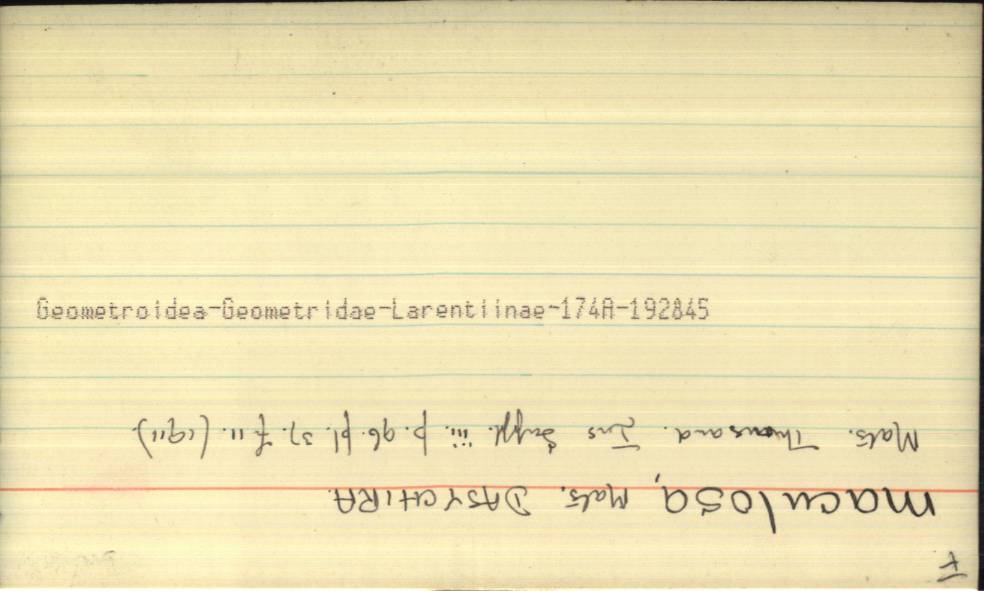 Geometroidea-Geometridae-Larentiinae-174A-192845
F
maculosa, Mats. DASYCHIRA.
Mats. Thousand. Ins Suppl. iii. p. 96. pl. 37. f 11. (1911).